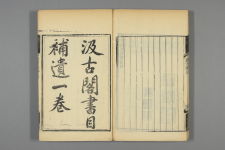 汲古閣書目
補遺一卷